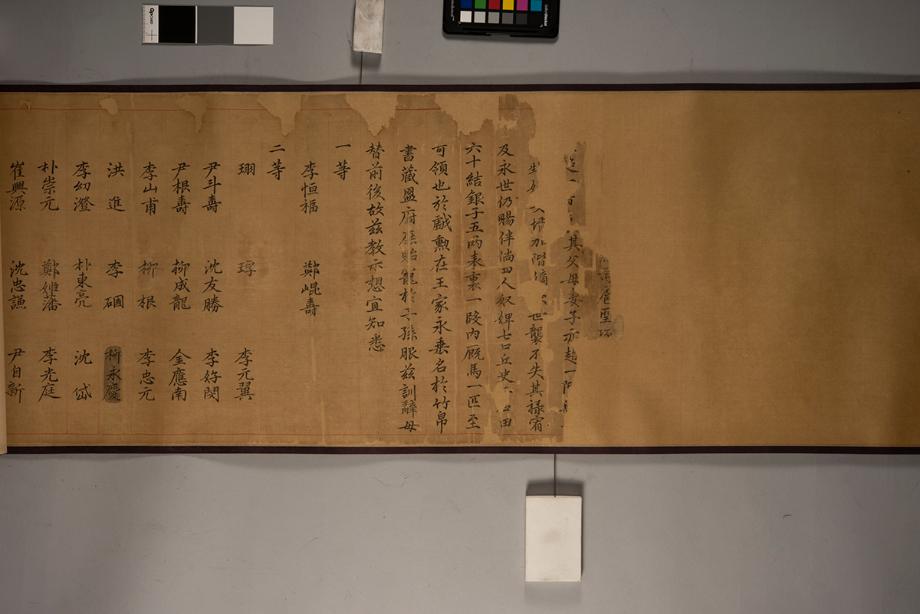 其父母妻子亦超一階
世襲不失其祿宥
及永世仍賜伴倘四人奴婢七口丘史 口田
六十結銀子五兩表裏一段內廐馬一匹至
可領也於戲勳在王家永垂名於竹帛
書藏盟府 貽寵於子孫服茲訓辭毋
替前後故茲教示想宜知悉
一等
李恒福 鄭崐壽
二等
珝 㻴 李元翼
尹斗壽 沈友勝 李好閔
尹根壽 柳成龍 金應南
李山甫 柳根 李忠元
洪進 李𥕏 柳永慶
李幼澄 朴東亮 沈岱
朴崇元 鄭姬藩 李光庭
崔興源 沈忠謙 尹自新